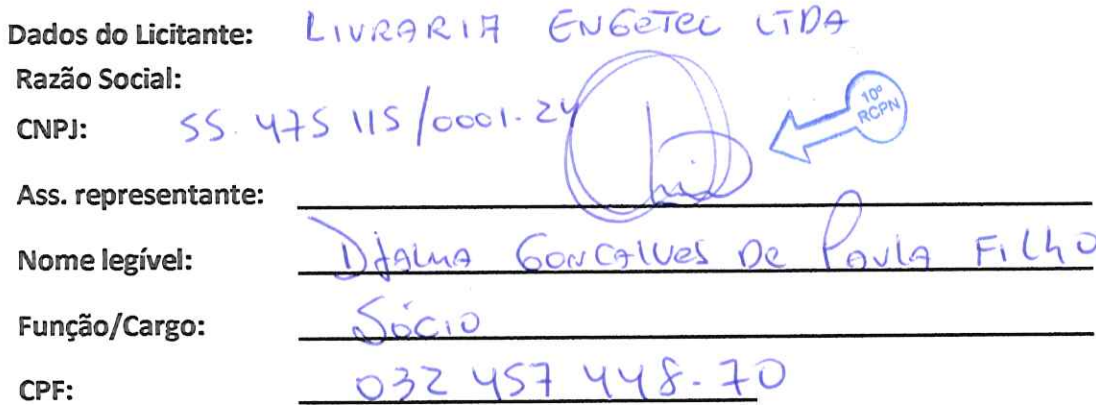 Dados do Licitante: LIVRARIA ENGETEC LTDA
Razão Social:
CNPJ: 55.475 115/0001-24
10º
RCPN
Ass. representante:
Nome legível: Djalma Goncalves De Paula Filho
Função/Cargo: Sócio
CPF: 032 457 448-70